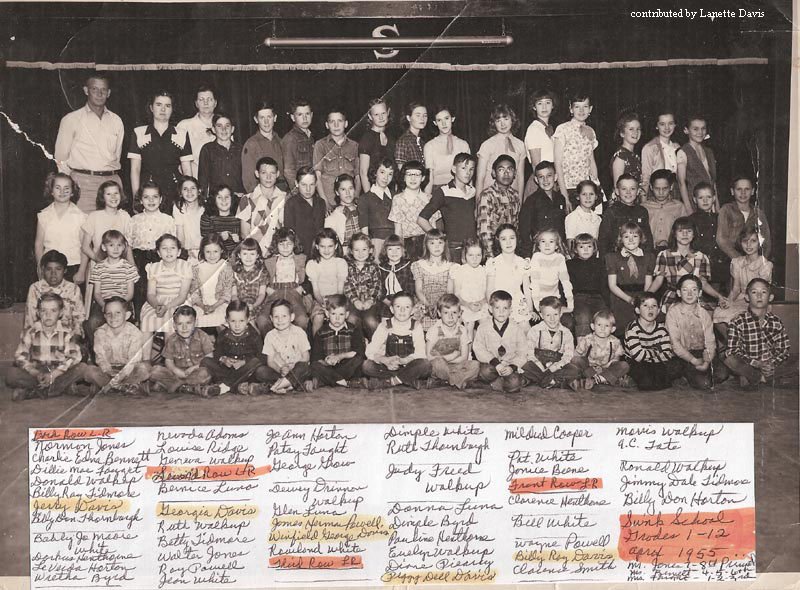 contributed by Lanette Davis
S
Back Row L-R
Norman Jones
Charlie Edna Bennett
Dillie Mae Faught
Donald Walkup
Billy Ray Tidmore
Jerry Davis
Billy Don Thornburgh
Jo Moore
White
Horton
Wretha Byrd
Nevada Adams
Louise Ridge
Walkup
Second Row L-R
Bernice Luna
Georgia Davis
Ruth Walkup
Betty Tidmore
Walter Jones
Roy Powell
Jean White
Jo Ann Horton
Patsy Faught
George Grow
Dewey Drinnon
Walkup
Glen Luna
James Herman Powell
Winfield George Davis
Rowland White
Third Row L-R
Dimple White
Ruth Thornburgh
Judy Freed
Walkup
Donna Luna
Dingle Byrd
Pauline
Evelyn Walkup
Diane Piearcy
Peggy Dell Davis
Mildred Cooper
Pat White
Janice Beene
Front Row L-R
Clarence
Bill White
Wayne Powell
Billy Roy Davis
Clarence Smith
Mavis Walkup
A.C. Tate
Ronald Walkup
Jimmy Dale Tidmore
Billy Don Horton
Sunk School
Grades 1-12
April 1955
Mr. Jones 7-8th
4-5-6th
1-2-3rd